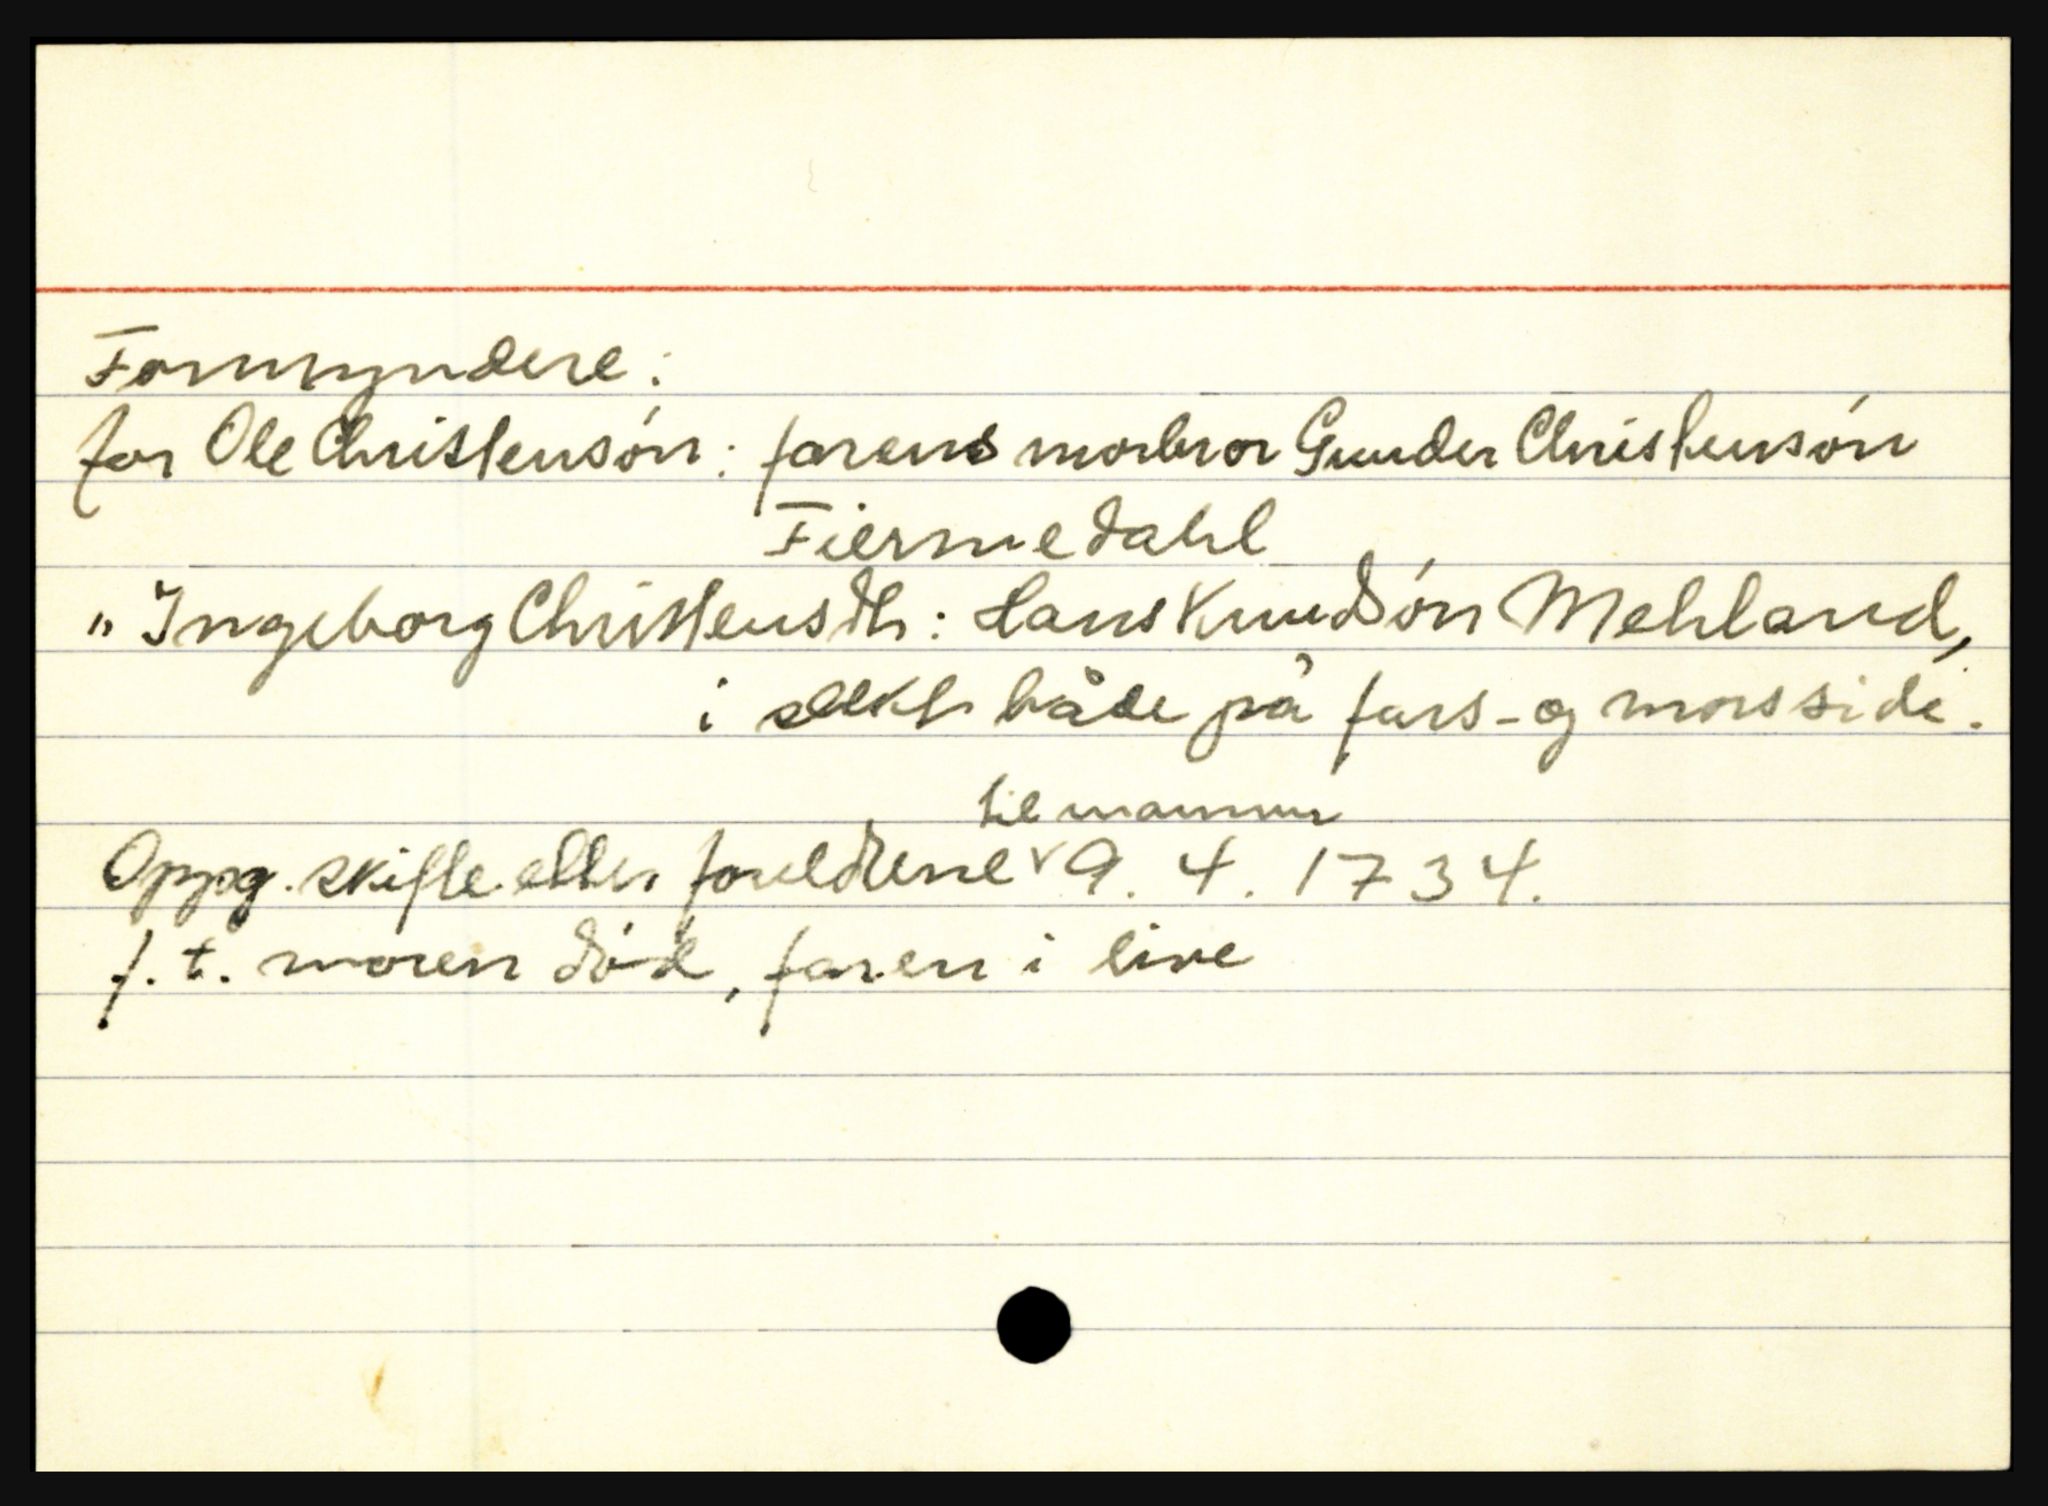 Formyndere:
for Ole Christensón: farens morbror Gunder Christensón
Fiermedahl
" Ingeborg Christensdtr: Hans Knudsón Mehland,
i slekt både på fars- og mors side.
til mannen
Oppg. skifte etter foreldrene v 9. 4. 1734.
f. t. moren død, faren i live